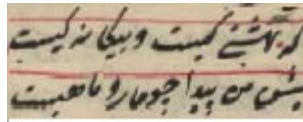 که آشنی کیست و بیگانه کیست
پیش من پیدا چو مار و ماهیست